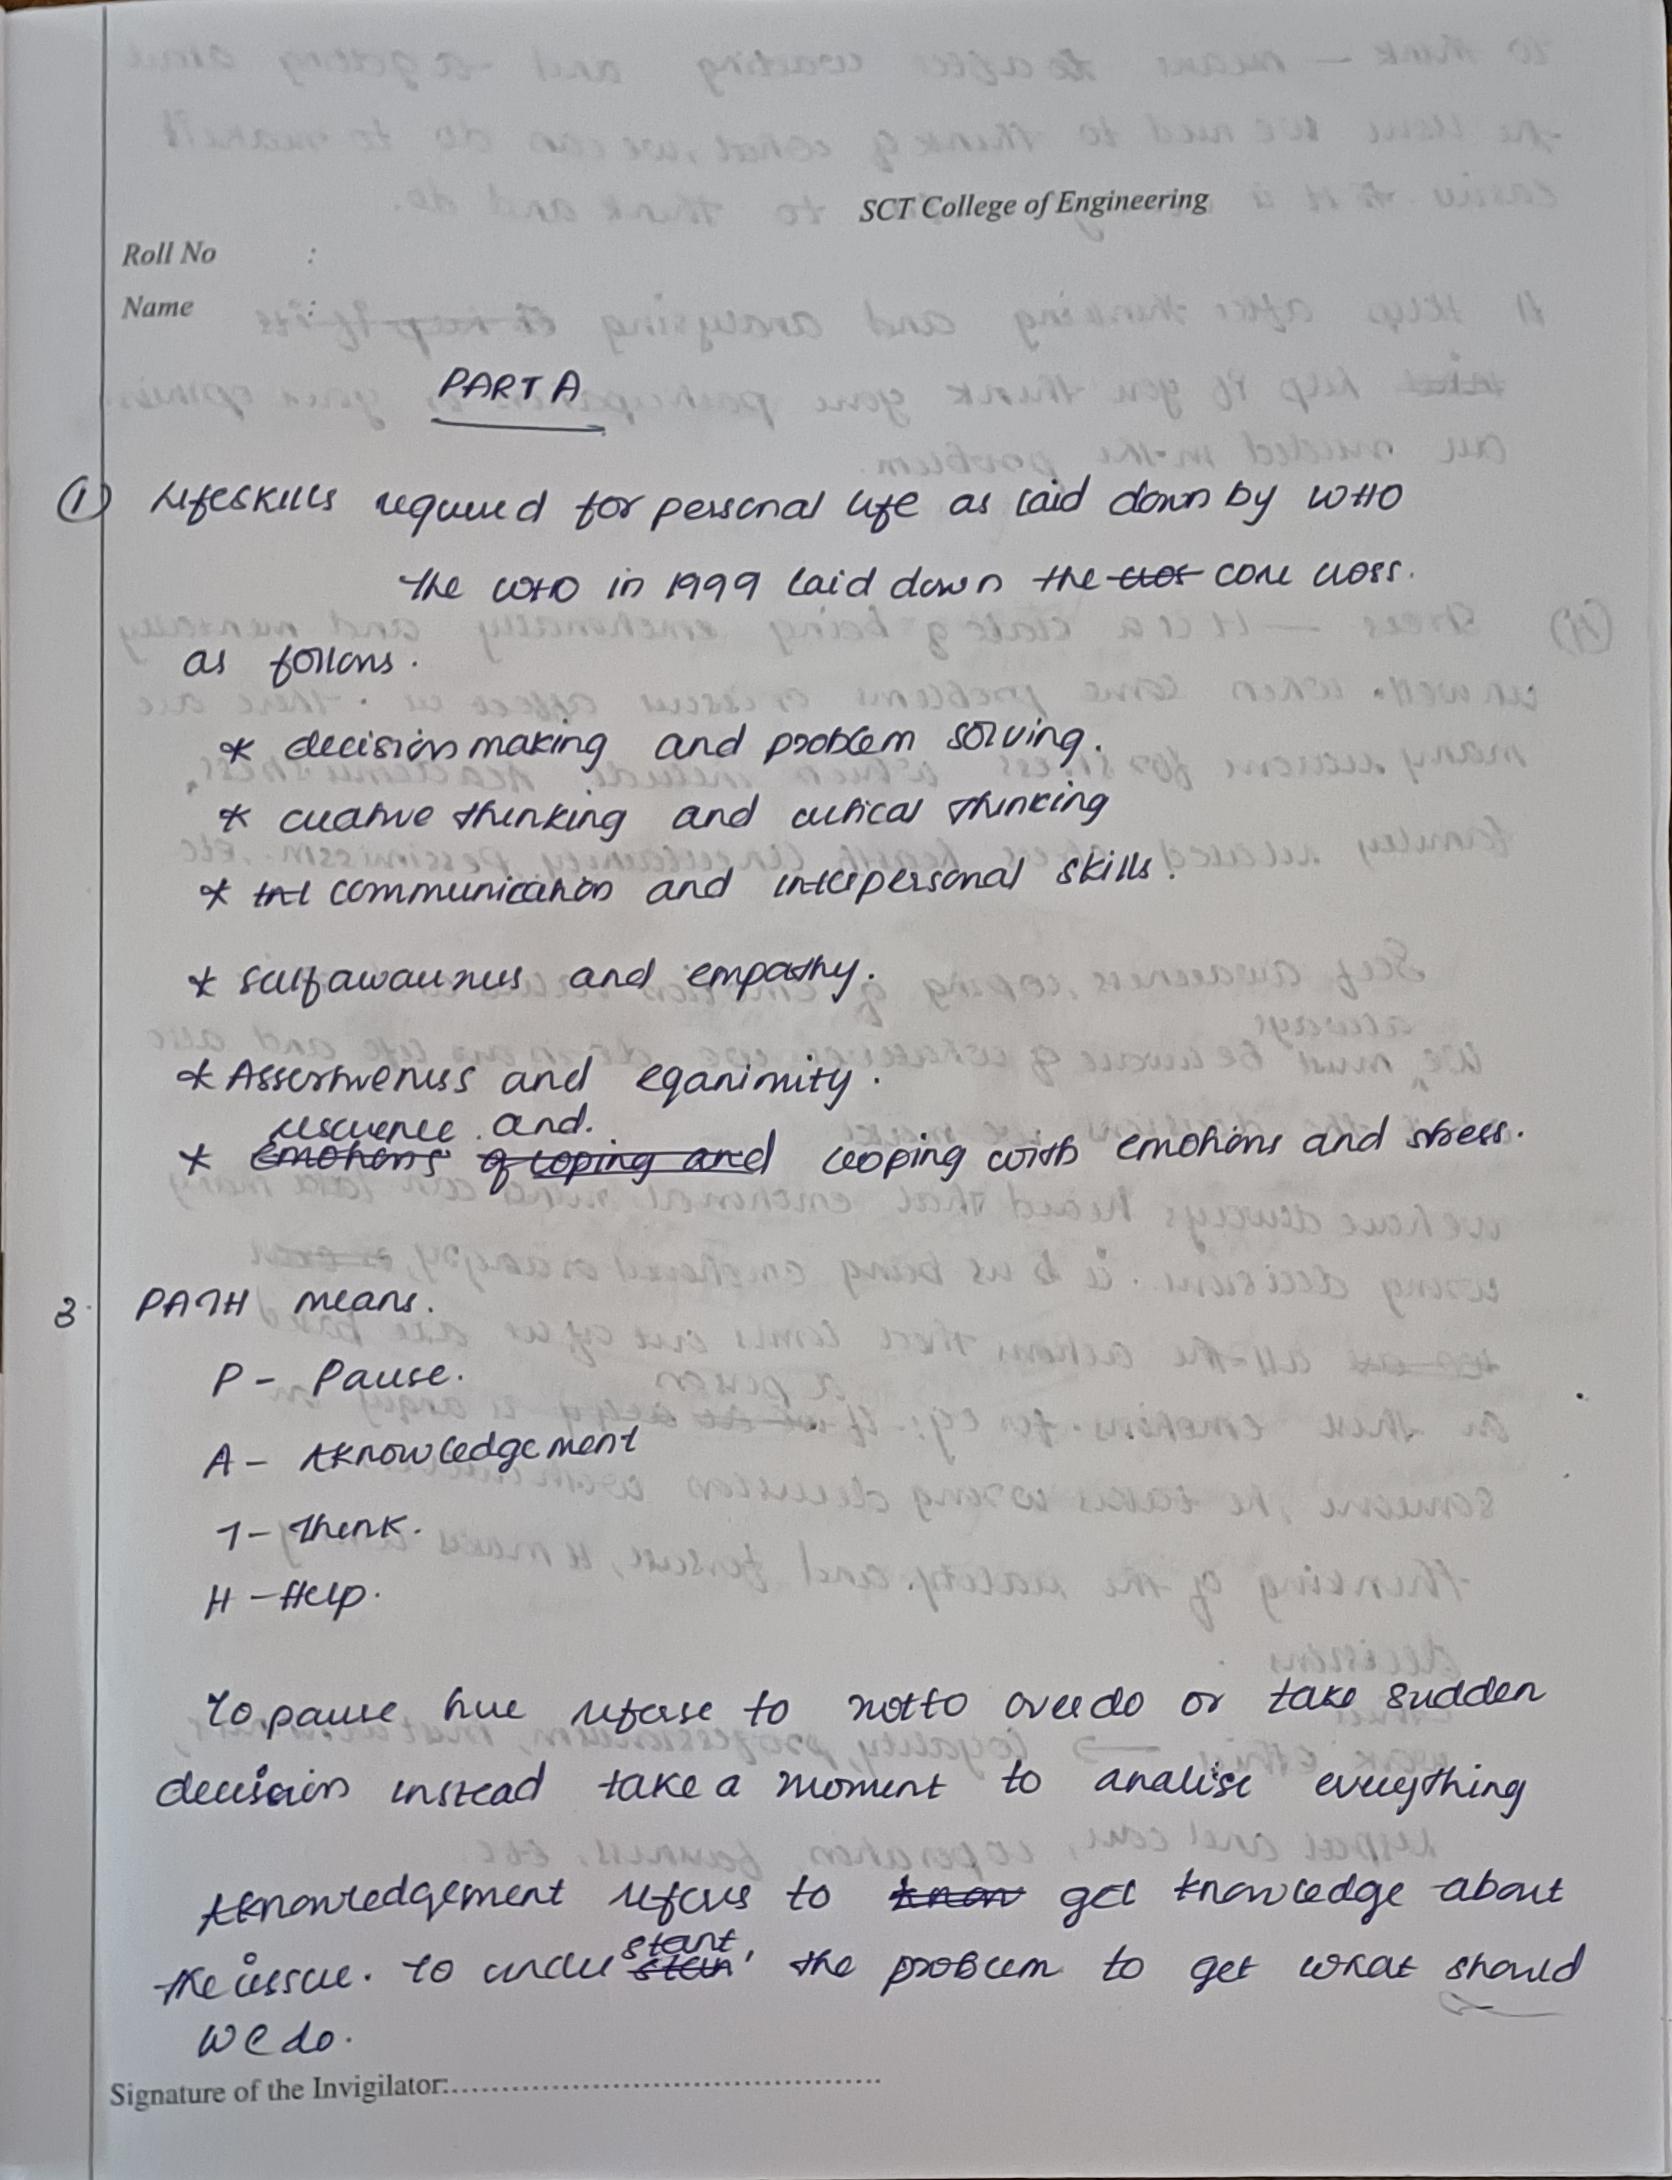 SCT College of Engineering
Roll No :
Name :
PART A
① Lifeskills required for personal life as laid down by WHO
The WHO in 1999 laid down the core cross.
as follows.
* decision making and problem solving.
* creative thinking and critical thinking
* communication and interpersonal skills.
* selfawareness and empathy.
* Assertiveness and eqanimity.
resilience and.
* cooping with emotions and stress.
3. PATH means.
P - Pause.
A - Aknowledgement
T - Think.
H - Help.
To pause here referse to notto overdo or take sudden
decision instead take a moment to analise everything
Aknowledgement refers to get knowledge about
the issue. to under stant, the problem to get what should
we do.
Signature of the Invigilator: